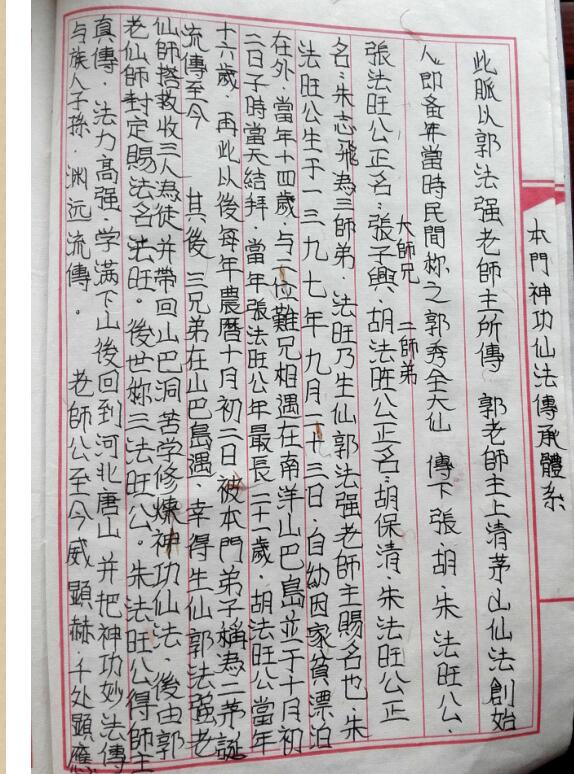 本門神功仙法傳承體系
此脈以郭法强老師主所傳 郭老師主上清茅山仙法創始
人即备年當時民間称之郭秀全大仙 傳下張.胡.朱法旺公.
大師兄 二師弟
張法旺公正名:張子興.胡法旺公正名:胡保清.朱法旺公正
名:朱志飛為三師弟.法旺乃生仙郭法强老師主賜名也.朱
法旺公生于一三九七年九月二十三日.自幼因家貧漂泊
在外.當年十四歲.与二位難兄相遇在南洋山巴島並于十月初
二日子時當天結拜.當年張法旺公年最長二十一歲.胡法旺公當年
十六歲.再此以後每年農曆十月初二日被本門弟子稱為二茅誕
流傳至今 其後三兄弟在山巴島遇.幸得生仙郭法强老
仙師搭救收三人為徒并帶回山巴洞苦学修煉神功仙法.後由郭
老仙師封定賜法名法旺。後世称三法旺公。朱法旺公得師主
真傳.法力高强.学滿下山後回到河北唐山 并把神功妙法傳
与族人子孫.渊沅流傳。 老師公至今威顯赫.千处顯應